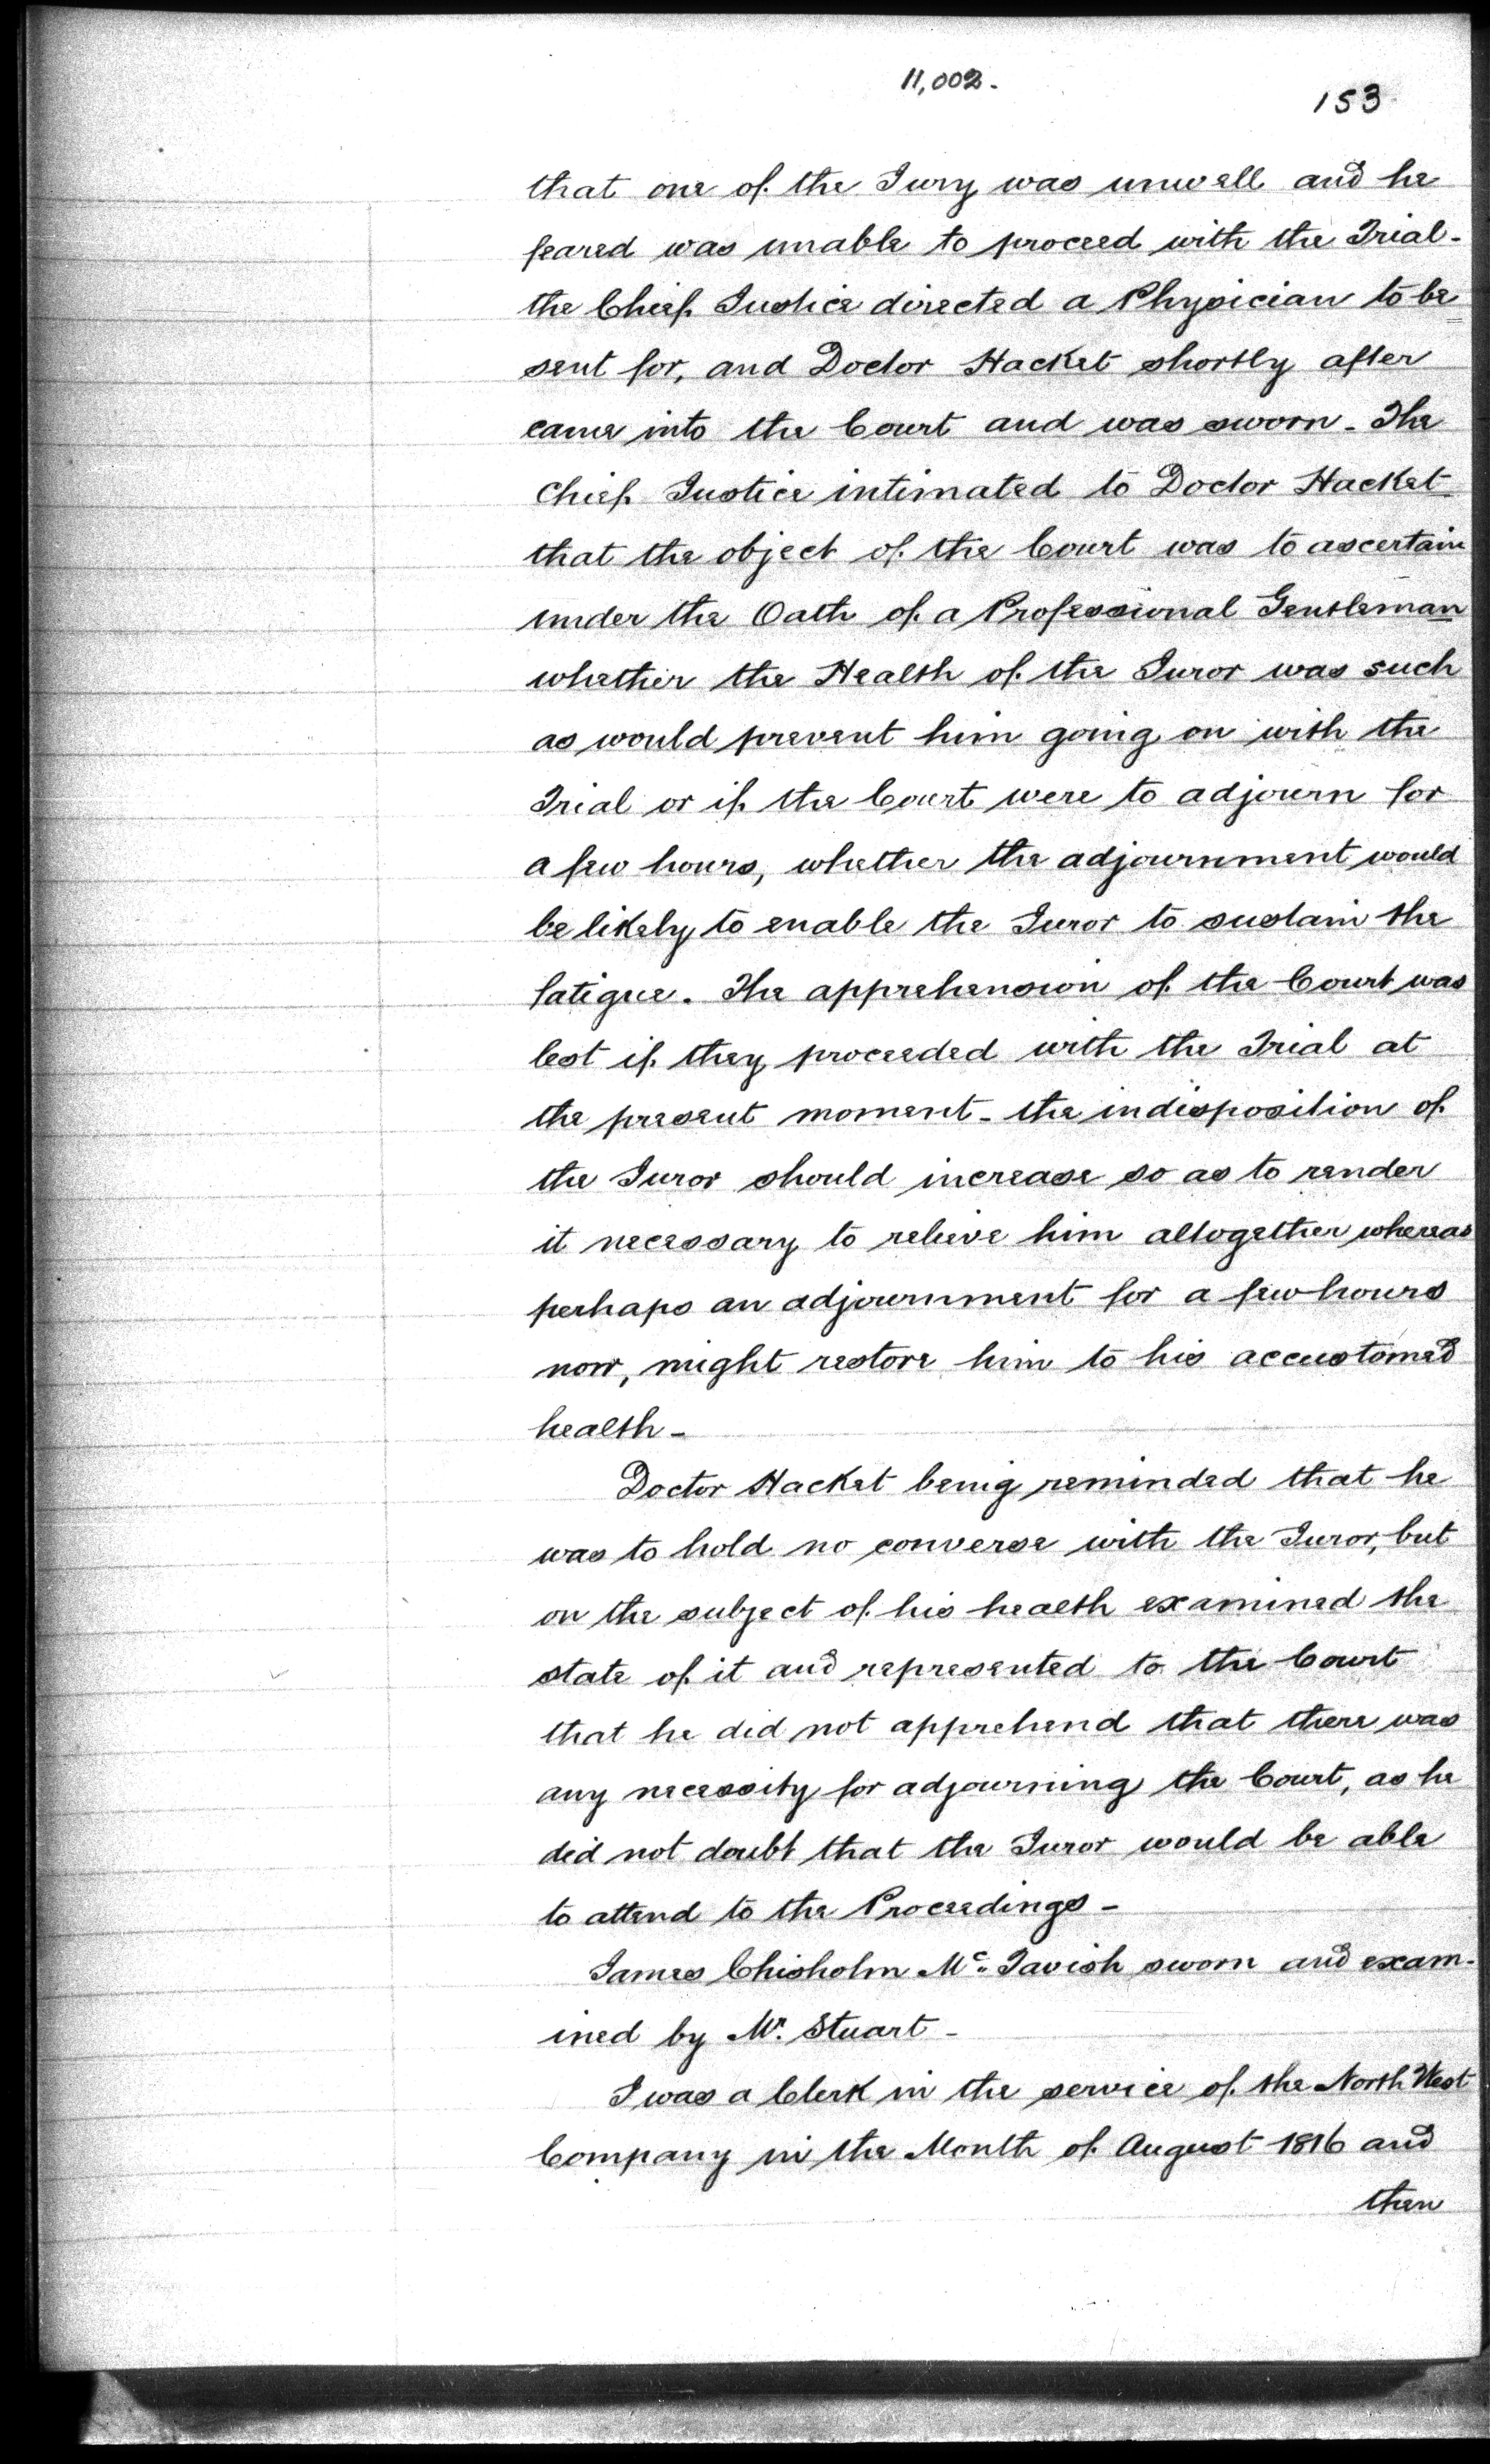 11,002.
153
that one of the Jury was unwell and he
feared was unable to proceed with the Trial-
the Chief Justice directed a Physician to be
sent for, and Doctor Hacket shortly after
came into the Court and was sworn - The
Chief Justice intimated to Doctor Hacket
that the object of the Court was to ascertain
under the Oath of a Professional Gentleman
whether the Health of the Juror was such
as would prevent him going on with the
Trial or if the Court were to adjourn for
a few hours, whether the adjournment would
be likely to enable the Juror to sustain the
fatigue. The apprehension of the Court was
lest if they proceeded with the Trial at
the present moment - the indisposition of
the Juror should increase so as to render
it necessary to relieve him altogether whereas
perhaps an adjournment for a few hours
now, might restore him to his accustomed
health -
Doctor Hacket being reminded that he
was to hold no converse with the Juror, but
on the subject of his health examined the
state of it and represented to the Court
that he did not apprehend that there was
any necessity for adjourning the Court, as he
did not doubt that the Juror would be able
to attend to the Proceedings -
James Chisholm Mc. Tavish sworn and exam-
ined by Mr. Stuart -
I was a Clerk in the service of the North West
Company in the Month of August 1816 and
then